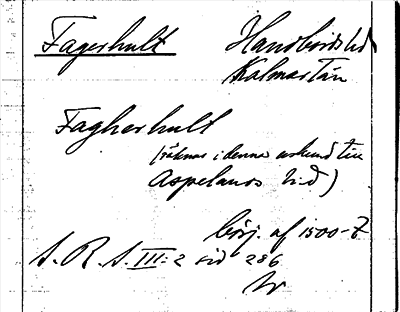 Fagerhult Handbörds hd
Kalmar län
Fagherhult
(räknas i denna urkund till
Aspelands hd)
börj. af 1500-t
S. R. S. III:2 sid 286